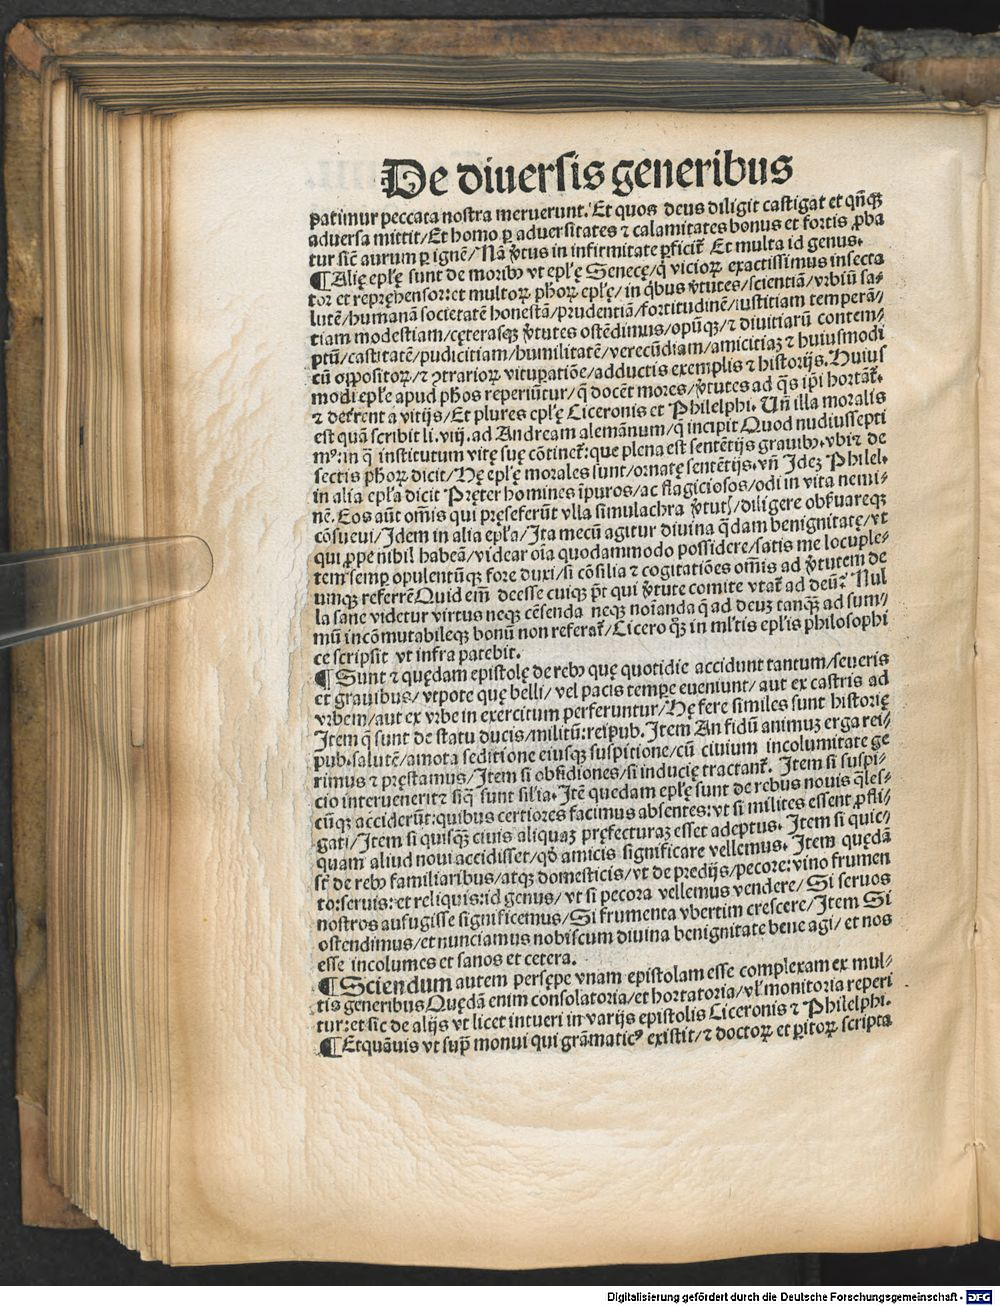 De diuersis generibus
patimur peccata nostra meruerunt. Et quos deus diligit castigat et qn̄qꝫ
aduersa mittit/Et homo ꝑ aduersitates ⁊ calamitates bonus et fortis ꝓba
tur sic̄ aurum ꝑ ignē/Nā v̓tus in infirmitate ꝑficit̄ Et multa id genus.
¶Alię epl̄ę sunt de moribꝰ vt epl̄ę Senecę/q̄ vicioꝝ exactissimus insecta
tor et reprȩhensor:et multoꝝ ph̄oꝝ epl̄ę/in q̄bus v̓tutes/scientiā/vrbiū sa⸗
lutē/humanā societatē honestā/prudentiā/fortitudinē/iustitiam temperā/
tiam modestiam/cȩterasqꝫ v̓tutes ostēdimus/opūqꝫ/⁊ diuitiarū contem⸗
ptū/castitatē/pudicitiam/humilitatē/verecūdiam/amicitiaꝫ ⁊ huiusmodi
cū oppositoꝝ/⁊ ↄtrarioꝝ vituꝑatiōe/adductis exemplis ⁊ historijs. Huius
modi epl̄e apud ph̄os reperiūtur/q̄ docēt mores/v̓tutes ad q̄s ip̄i hortāt̄.
⁊ deterrent a vitijs/Et plures epl̄ę Ciceronis et Philelphi. Un̄ illa moralis
est quā scribit li. viij. ad Andream alemānum/q̄ incipit Quod nudiussepti
mꝰ:in q̄ institutum vitę suę cōtinet̄:que plena est sentētijs grauibꝰ.vbi⁊ de
sectis ph̄oꝝ dicit/Hę epl̄ę morales sunt/ornatę sentētijs.vn̄ Jdeꝫ Philel.
in alia epl̄a dicit Prȩter homines īpuros/ac flagiciosos/odi in vita nemi⸗
nē. Eos aūt om̄is qui prȩseferūt vlla simulachra v̓tutꝭ/diligere obẜuareqꝫ
cōsueui/Jdem in alia epl̄a/Jta mecū agitur diuina q̄dam benignitatę/vt
qui ꝓpe nihil habeā/videar oīa quodammodo possidere/satis me locuple⸗
tem semꝑ opulentūqꝫ fore duxi/si cōsilia ⁊ cogitatiōes om̄is ad v̓tutem de
umqꝫ referrē Quid eīm deesse cuiqꝫ pt̄ qui v̓tute comite vtat̄ ad deū? Nul
la sane videtur virtus neqꝫ cēsenda neqꝫ noīanda q̄ ad deuꝫ tanqꝫ ad sum/
mū incōmutabileqꝫ bonū non referat̄/Cicero qꝫ in ml̄tis epl̄is philosophi
ce scripsit vt infra patebit.
¶Sunt ⁊ quȩdam epistolę de rebꝰ quę quotidie accidunt tantum/seueris
et grauibus/vtpote quę belli/vel pacis tempore eueniunt/aut ex castris ad
vrbem/aut ex vrbe in exercitum perferuntur/Hę fere similes sunt historię
Jtem q̄ sunt de statu ducis/militū:reipub.Jtem An fidū animuꝫ erga rei⸗
pub.salutē/amota seditione eiusqꝫ suspitione/cū ciuium incolumitate ge
rimus ⁊ prȩstamus/Jtem si obsidiones/si inducię tractant̄. Jtem si suspi⸗
cio interuenerit⁊ siq̄ sunt sil̄ia.Jtē quedam epl̄ę sunt de rebus nouis q̄les⸗
cūqꝫ acciderūt:quibus certiores facimus absentes:vt si milites essent ꝓfli⸗
gati/Jtem si quisqꝫ ciuis aliquaꝫ prȩfecturaꝫ esset adeptus. Jtem si quic⸗
quam aliud noui accidisset/qd̓ amicis significare vellemus. Jtem quȩdā
st̄ de rebꝰ familiaribus/atqꝫ domesticis/vt de predijs/pecore:vino frumen
to:seruis:et reliquis:id genus/vt si pecora vellemus vendere/Si seruos
nostros aufugisse significemus/Si frumenta vbertim crescere/Jtem Si
ostendimus/et nunciamus nobiscum diuina benignitate bene agi/et nos
esse incolumes et sanos et cetera.
¶Sciendum autem persȩpe vnam epistolam esse complexam ex mul⸗
tis generibus Quȩdā enim consolatoria/et hortatoria/vl̄ monitoria reperi
tur:et sic de alijs vt licet intueri in varijs epistolis Ciceronis ⁊ Philelphi.
¶Etquāuis vt supr̄ monui qui grāmaticꝰ existit/⁊ doctoꝝ et ꝑitoꝝ scripta
Digitalisierung gefördert durch die Deutsche Forschungsgemeinschaft - DFG